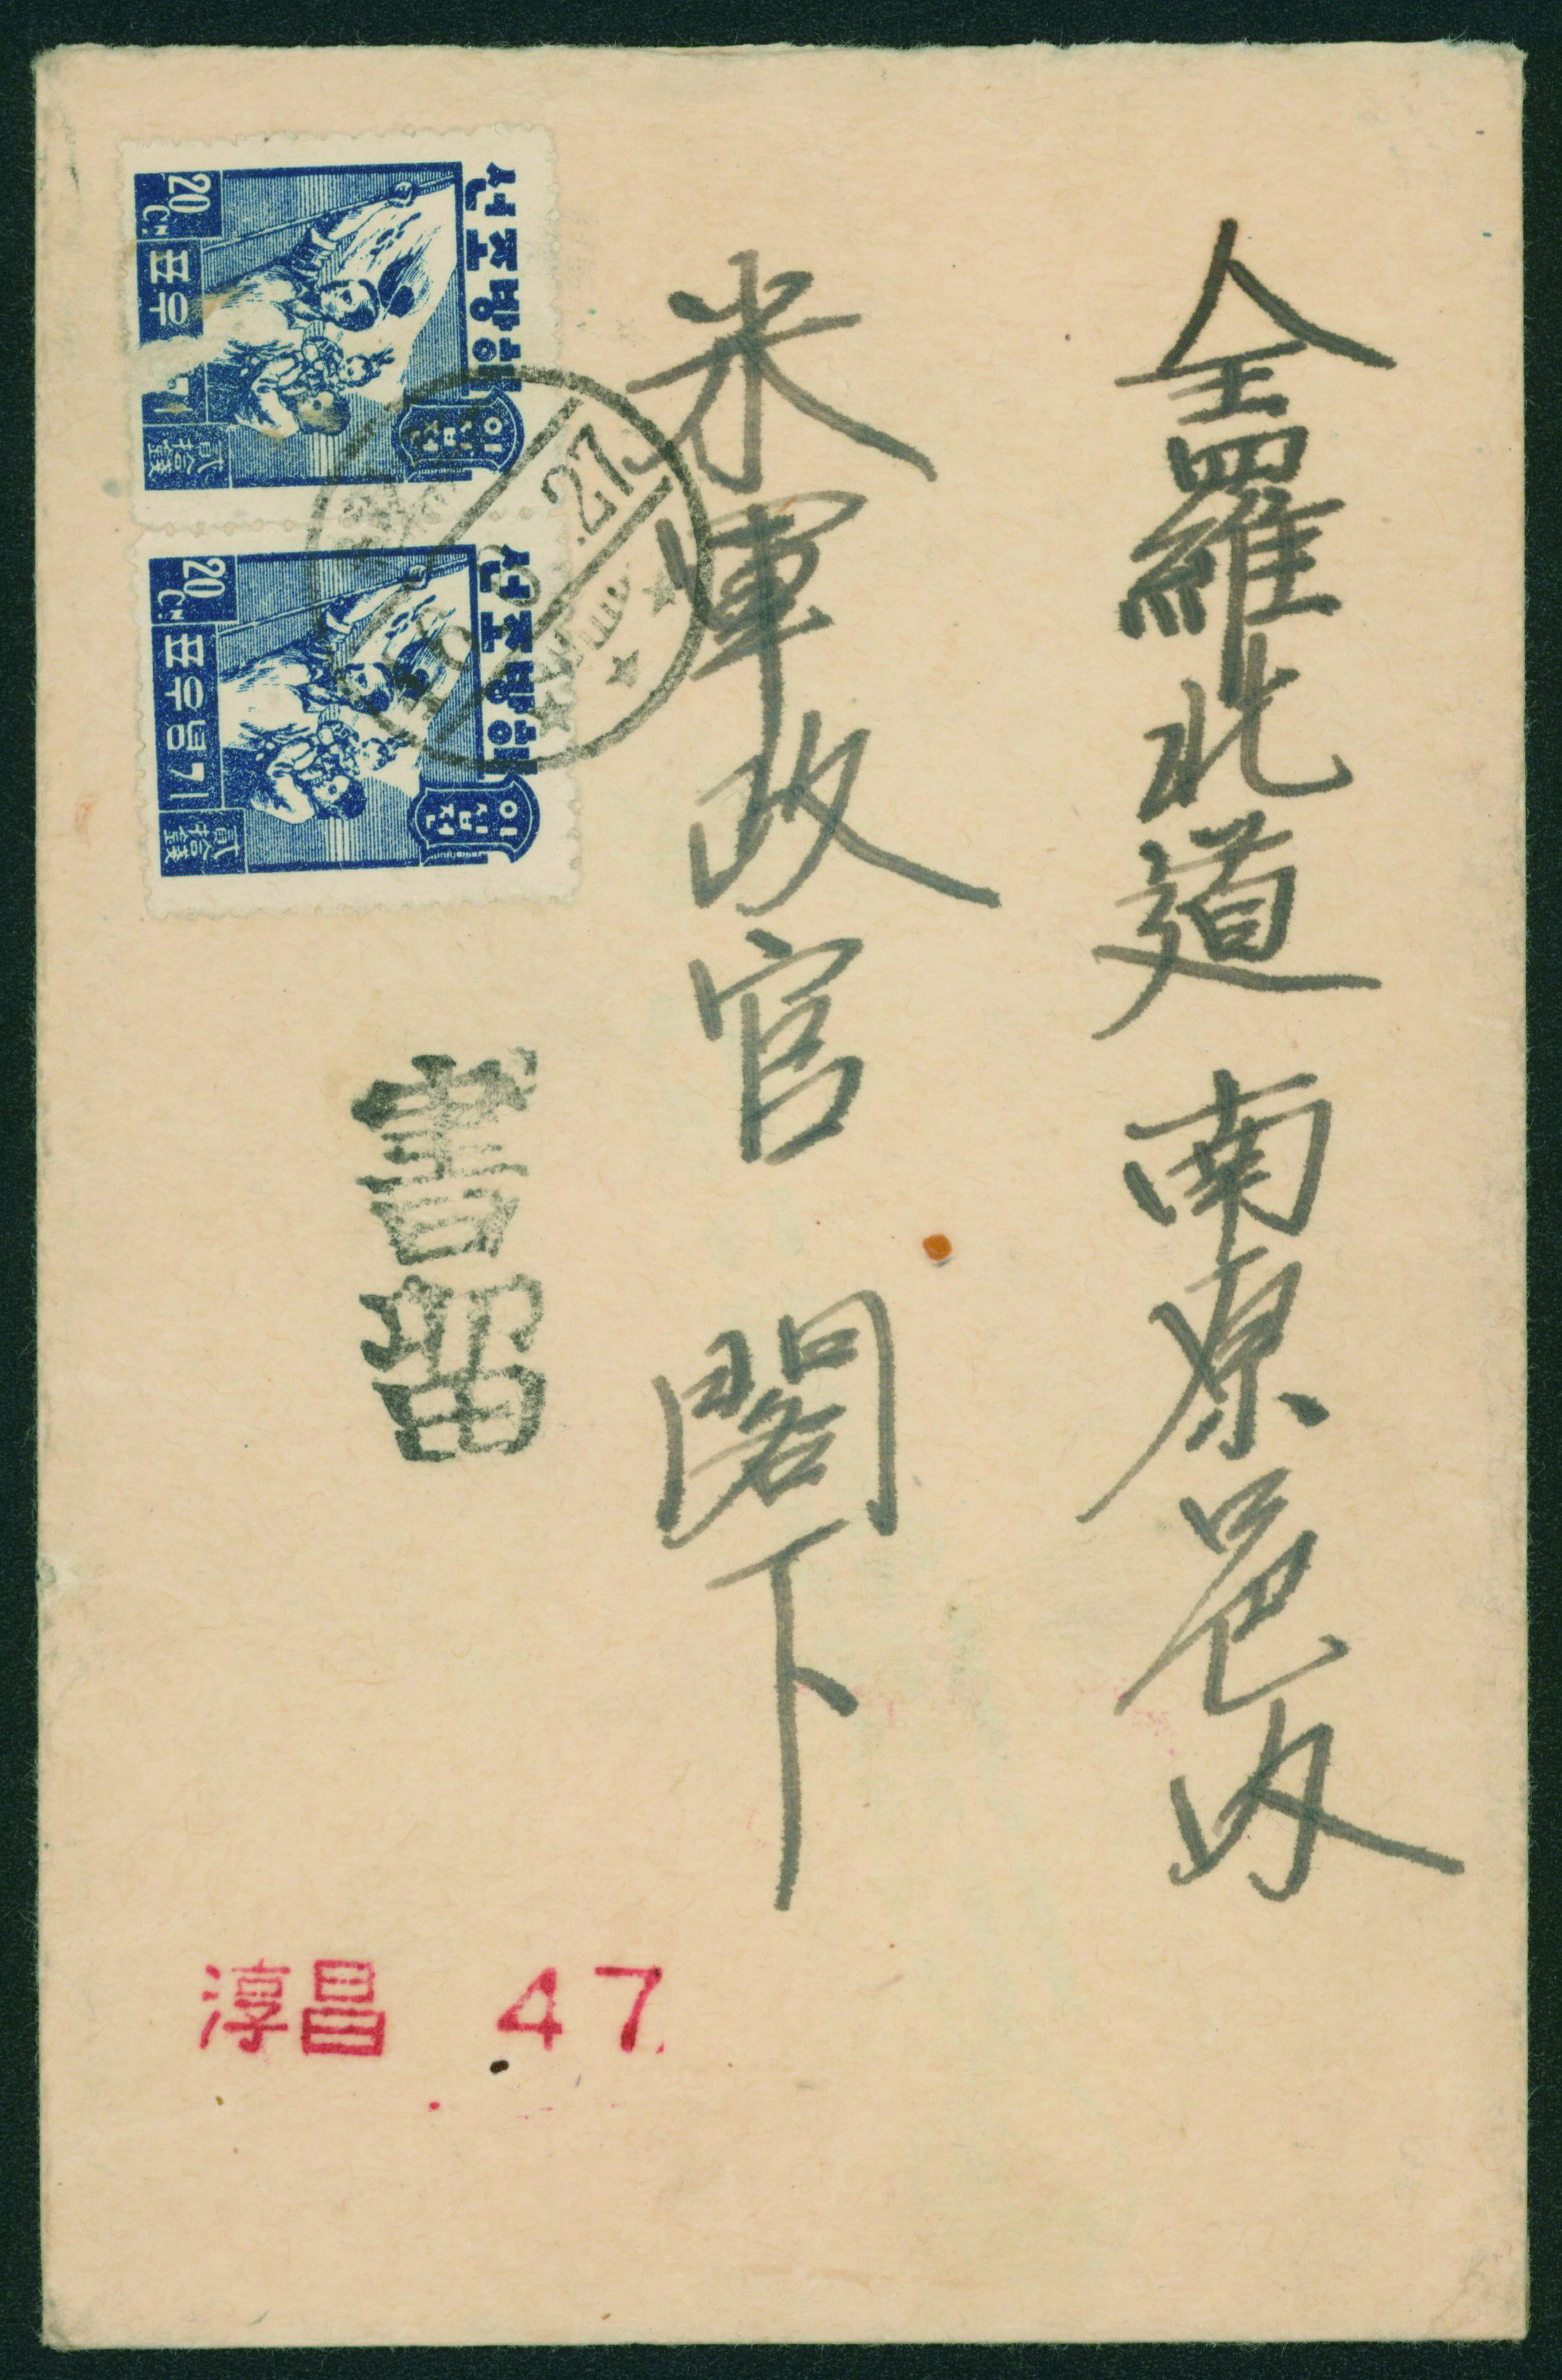 全羅北道 南原邑内
米軍政官 閣下
해방조선
이십전
20 CN.
기념우표
貳拾錢
해방조선
이십전
20 CN.
기념우표
貳拾錢
27
書留
淳昌 47